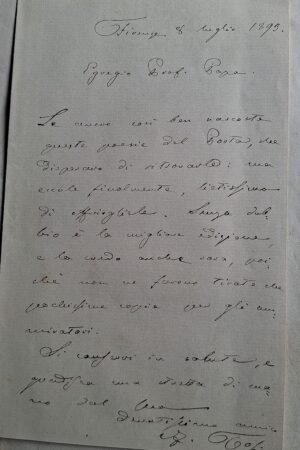 Firenze 8 luglio 1895.
Egregio Prof. Papa.
Le avevo così ben nascoste
queste poesie del Porta, che
disperavo di ritrovarle: ma
eccole finalmente, lietissimo
di offrirgliele. Senza dub-
bio è la migliore edizione,
e la credo anche rara, poi-
chè non ne furono tirate che
pochissime copie per gli am-
miratori.
Si conservi in salute, e
gradisca una stretta di ma-
no dal suo
devotissimo amico